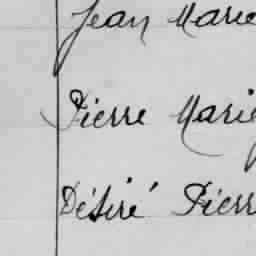 Jean Marie
Pierre Marie
Désiré Pierr